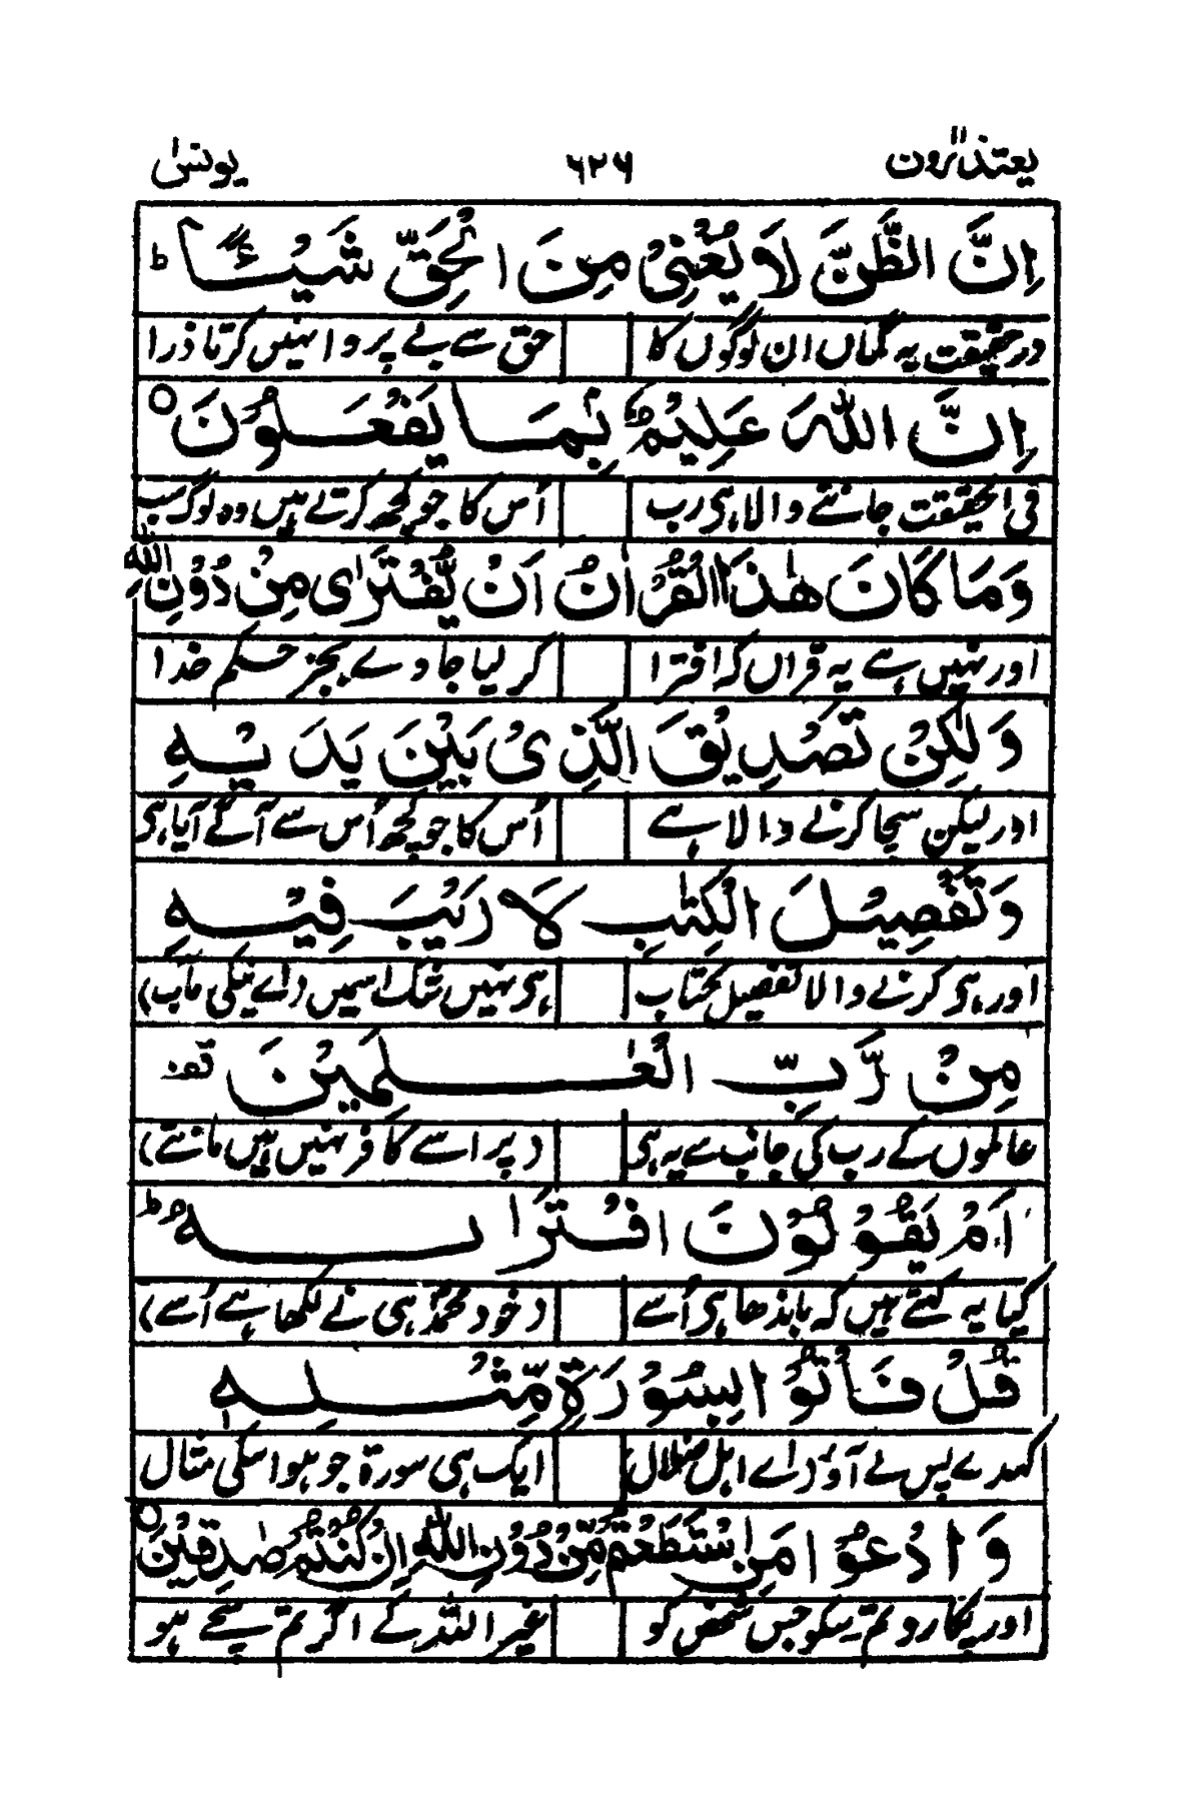 یعتذرون ۶۲۶ یونس
اِنَّ الظَّنَّ لَا یُغْنِیْ مِنَ الْحَقِّ شَیْـًٔا ط
درحقیقت یہ گماں ان لوگوں کا حق سے بے پروا نہیں کرتا ذرا
اِنَّ اللّٰهَ عَلِیْمٌۢ بِمَا یَفْعَلُوْنَ ○
فی الحقیقت جاننے والا ہی رب اُس کا جو کچھ کرتے ہیں وہ لوگ سب
وَمَا كَانَ هٰذَا الْقُرْاٰنُ اَنْ یُّفْتَرٰی مِنْ دُوْنِ اللّٰهِ
اور نہیں ہے یہ قراں کہ افترا کر لیا جاوے بجز حکم خدا
وَلٰكِنْ تَصْدِیْقَ الَّذِیْ بَیْنَ یَدَیْهِ
اور لیکن سچا کرنے والا ہے اُس کا جو کچھ اُس سے آگے آیا ہی
وَتَفْصِیْلَ الْكِتٰبِ لَا رَیْبَ فِیْهِ
اور ہی کرنے والا تفصیل کتاب ہی نہیں شک اسمیں (اے نیکی مآب)
مِنْ رَّبِّ الْعٰلَمِیْنَ قف
عالموں کے رب کی جانب سے یہ ہی (پر اسے کافر نہیں ہیں مانتے)
اَمْ یَقُوْلُوْنَ افْتَرٰىهُ ط
کیا یہ کہتے ہیں کہ باندھا ہی اُسے (خود محمدؐ ہی نے لکھا ہے اُسے)
قُلْ فَاْتُوْا بِسُوْرَةٍ مِّثْلِهٖ
کہدے پس لے آؤ (اے اہل ضلال) ایک ہی سورۃ جو ہو اسکی مثال
وَادْعُوْا مَنِ اسْتَطَعْتُمْ مِّنْ دُوْنِ اللّٰهِ اِنْ كُنْتُمْ صٰدِقِیْنَ ○
اور پکارو تم سکو جس شخص کو غیر اللہ کے اگر تم سچے ہو